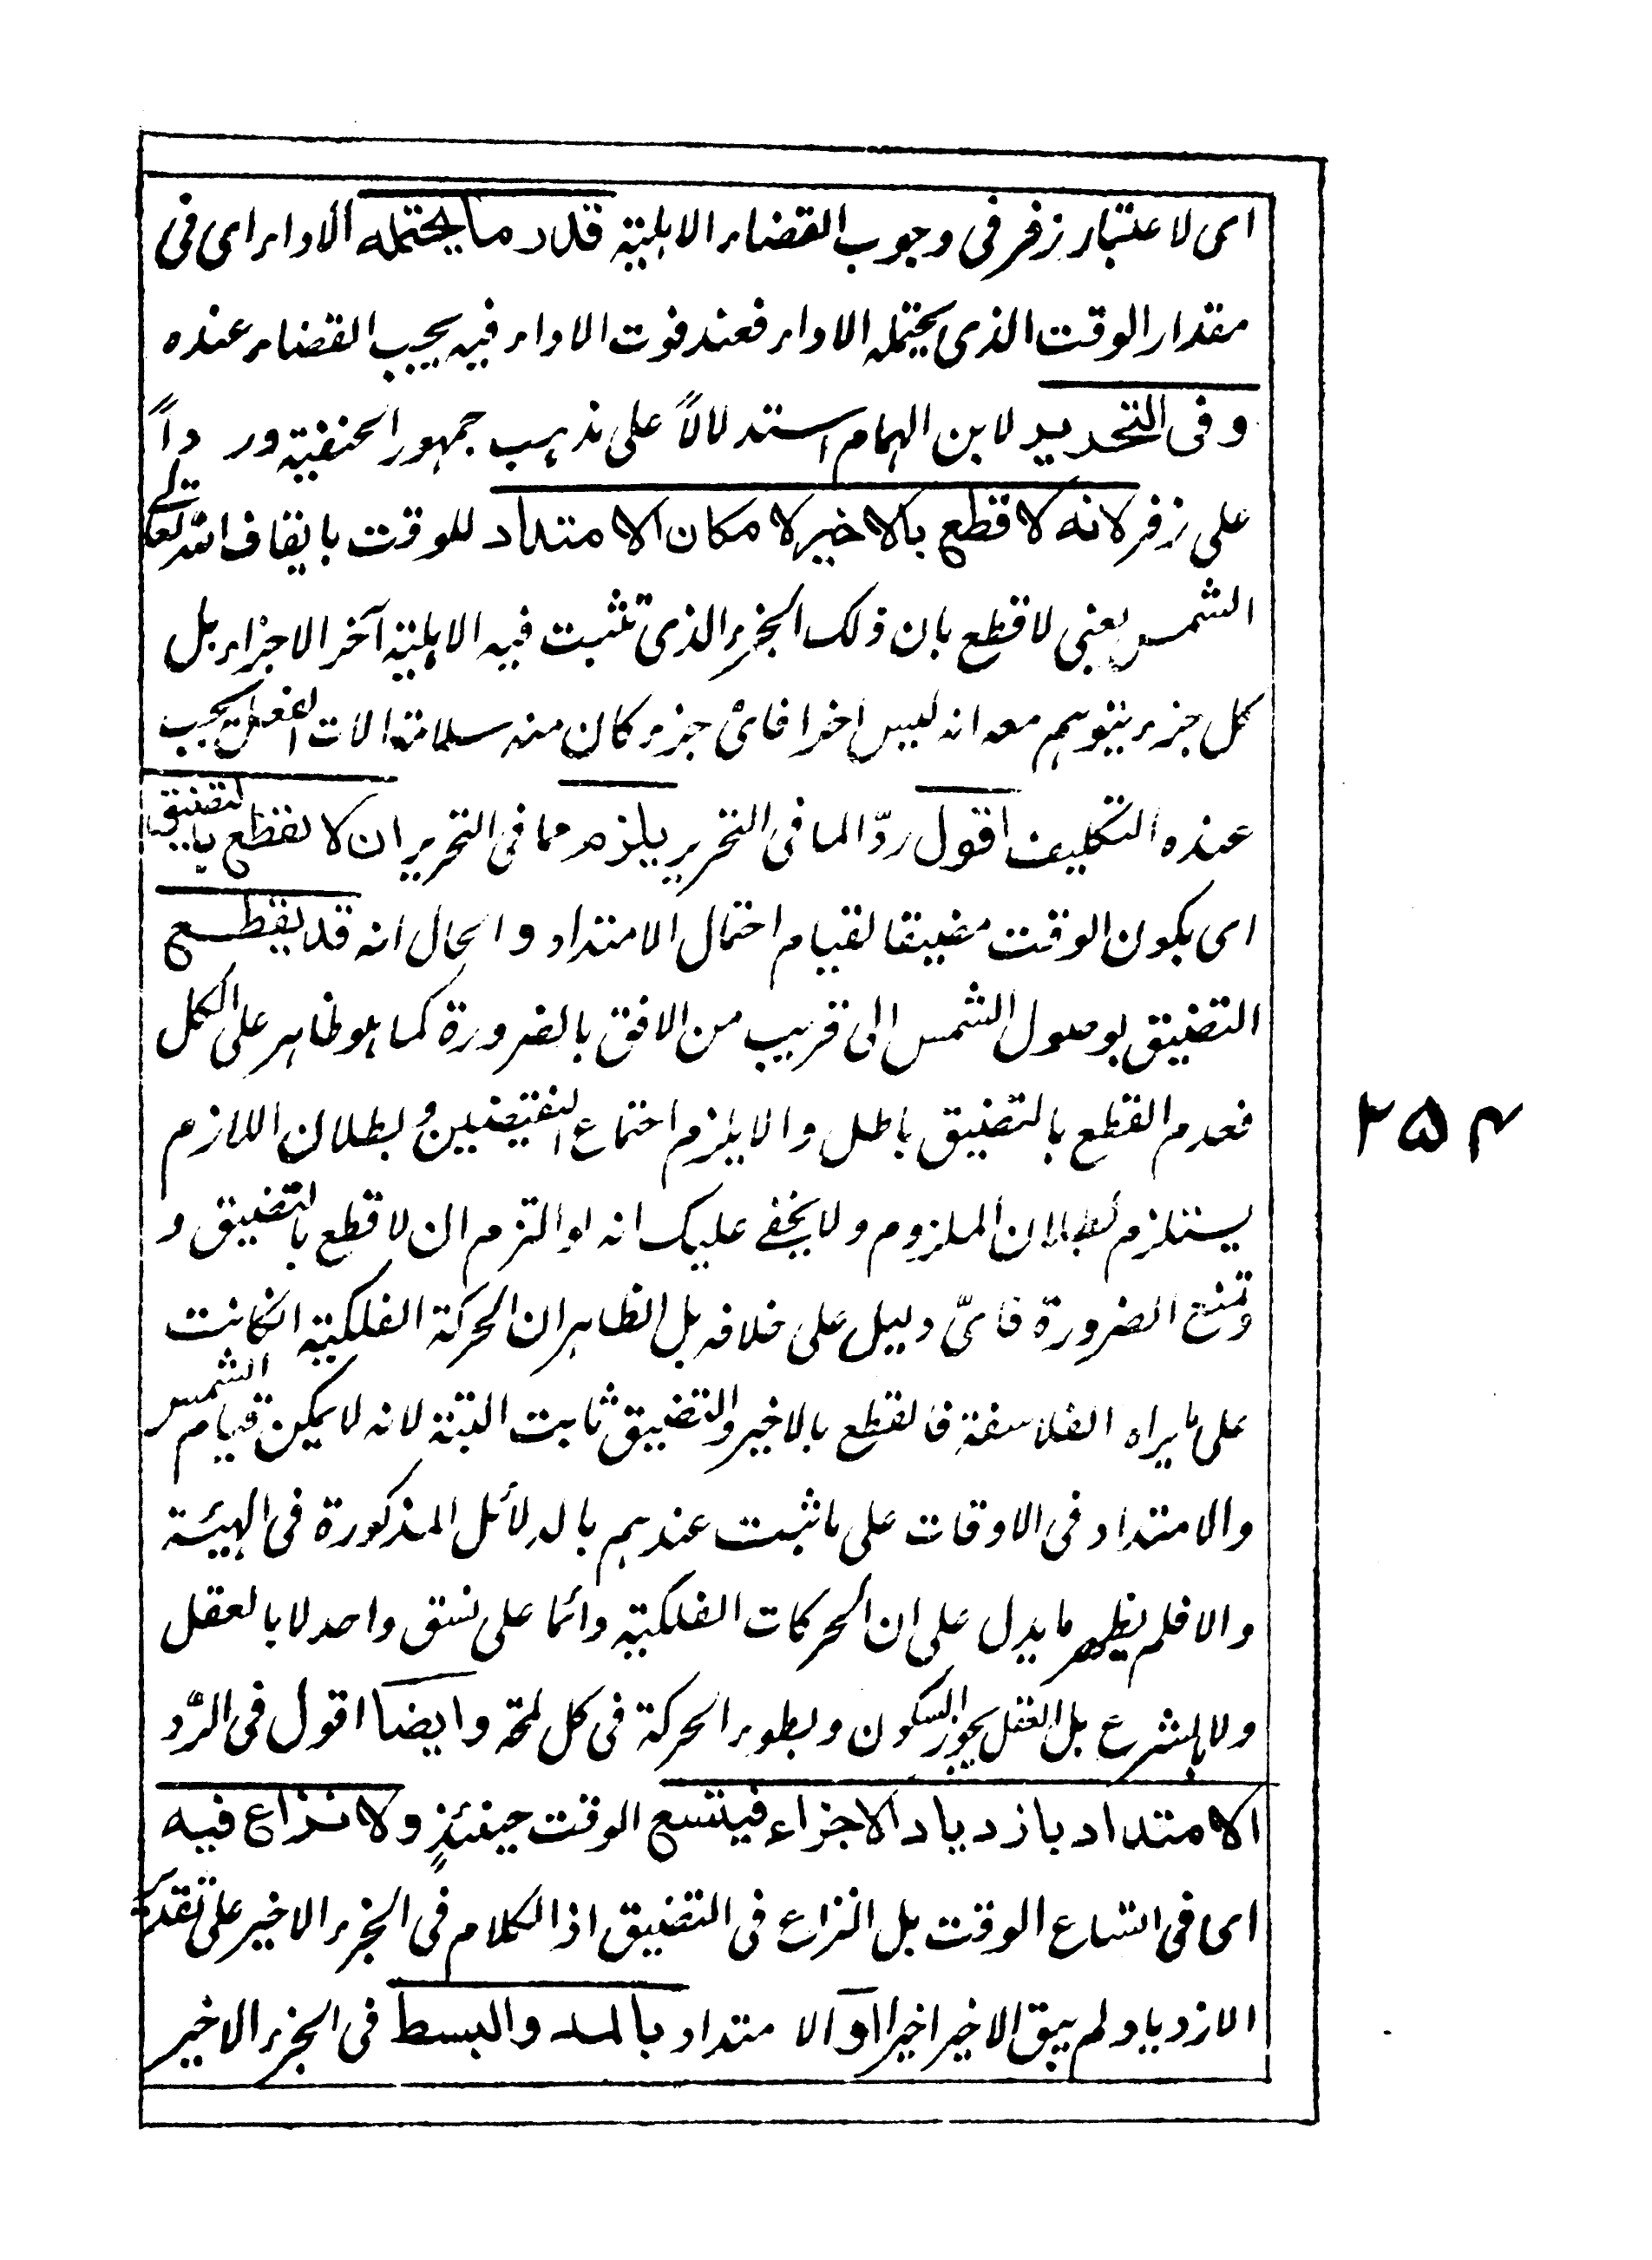 اى لاعتبار زفر فى وجوب القضاء الاهلية قدر ما يحتمله الاداء اى فى
مقدار الوقت الذى يحتمله الاداء فعند فوت الاداء فيه يجب القضاء عنده
وفى التحرير لابن الهمام استدلالاً على مذهب جمهور الحنفية ورداً
على زفر لانه لا قطع بالاخير لا مكان الامتداد للوقت بايقاف الله تعالى
الشمس يعنى لا قطع بان ذلك الجزء الذى تثبت فيه الاهلية آخر الاجزاء بل
كل جزء يتوهم معه انه ليس اخرا فاى جزء كان منه سلامة الات الفعل يجب
عنده التكليف اقول ردّا لما فى التحرير يلزم مما فى التحرير ان لا نقطع بالتضيق
اى بكون الوقت مضيقا لقيام احتمال الامتداد والحال انه قد يقطع
التضيق بوصول الشمس الى قريب من الافق بالضرورة كما هو ظاهر على الكل
فعدم القطع بالتضيق باطل والا يلزم اجتماع النقيضين وبطلان اللازم
يستلزم بطلان الملزوم ولا يخفى عليك انه لو التزم ان لا قطع بالتضيق و
وتمنع الضرورة فاىّ دليل على خلافه بل الظاهر ان الحركة الفلكية انكانت
على ما يراه الفلاسفة فالقطع بالاخير والتضيق ثابت البتة لانه لا يمكن قيام الشمس
والامتداد فى الاوقات على ما ثبت عندهم بالدلائل المذكورة فى الهيئة
والا فلم يظهر ما يدل على ان الحركات الفلكية دائما على نسق واحد لا بالعقل
ولا بالشرع بل العقل يجوز السكون وبطوء الحركة فى كل لمحة وايضا اقول فى الرّد
الامتداد بازدياد الاجزاء فيتسع الوقت حينئذٍ ولا نزاع فيه
اى فى اتساع الوقت بل النزاع فى التضيق اذ الكلام فى الجزء الاخير على تقدير
الازدياد لم يبق الاخير اخيرا او الا متداد بالمد والبسط فى الجزء الاخير
۲۵۴